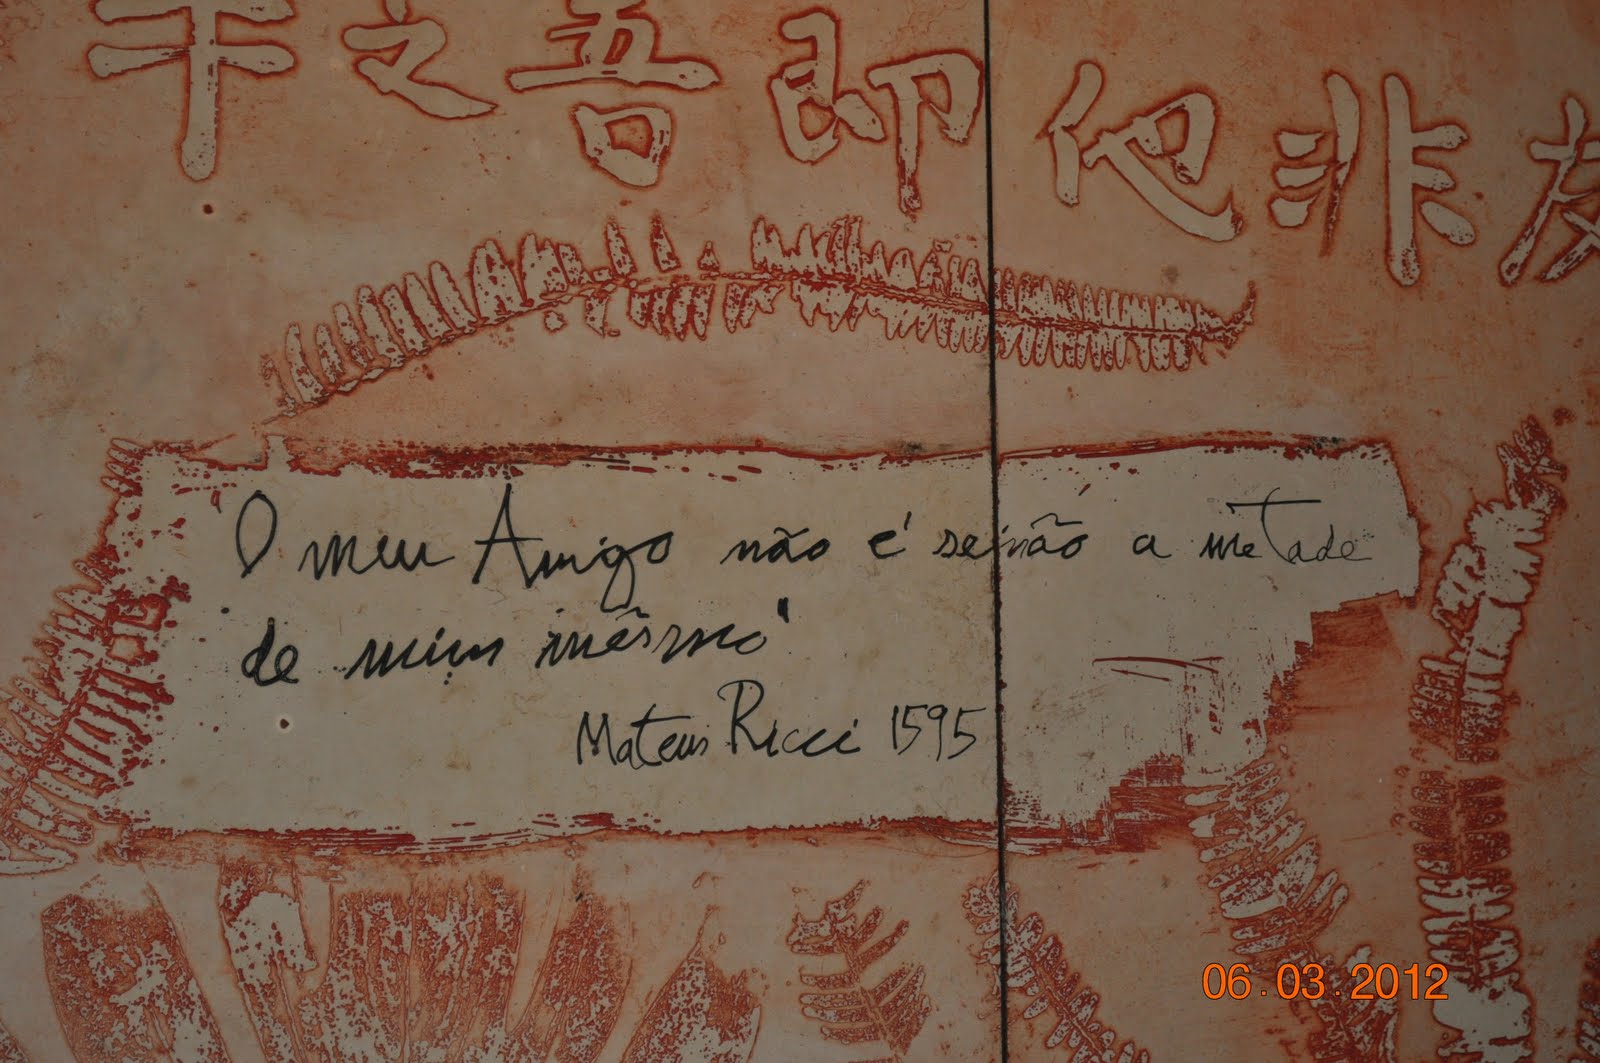 友非他即吾之半
"O meu Amigo não é senão a metade
de mim mêsmo"
Mateus Ricci 1595
06.03.2012